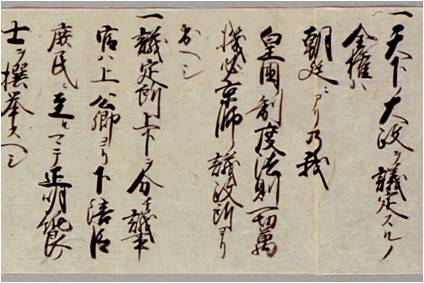 一天下ノ大政ヲ議定スルノ
全権ハ
朝廷ニアリ乃我
皇國ノ制度法則一切萬
機必京師ノ議政所ヨリ
出ヘシ
一議定所上下ヲ分チ議事
官ハ上公卿ヨリ下陪臣
庶民ニ至ルマテ正明純良ノ
士ヲ撰挙スヘシ